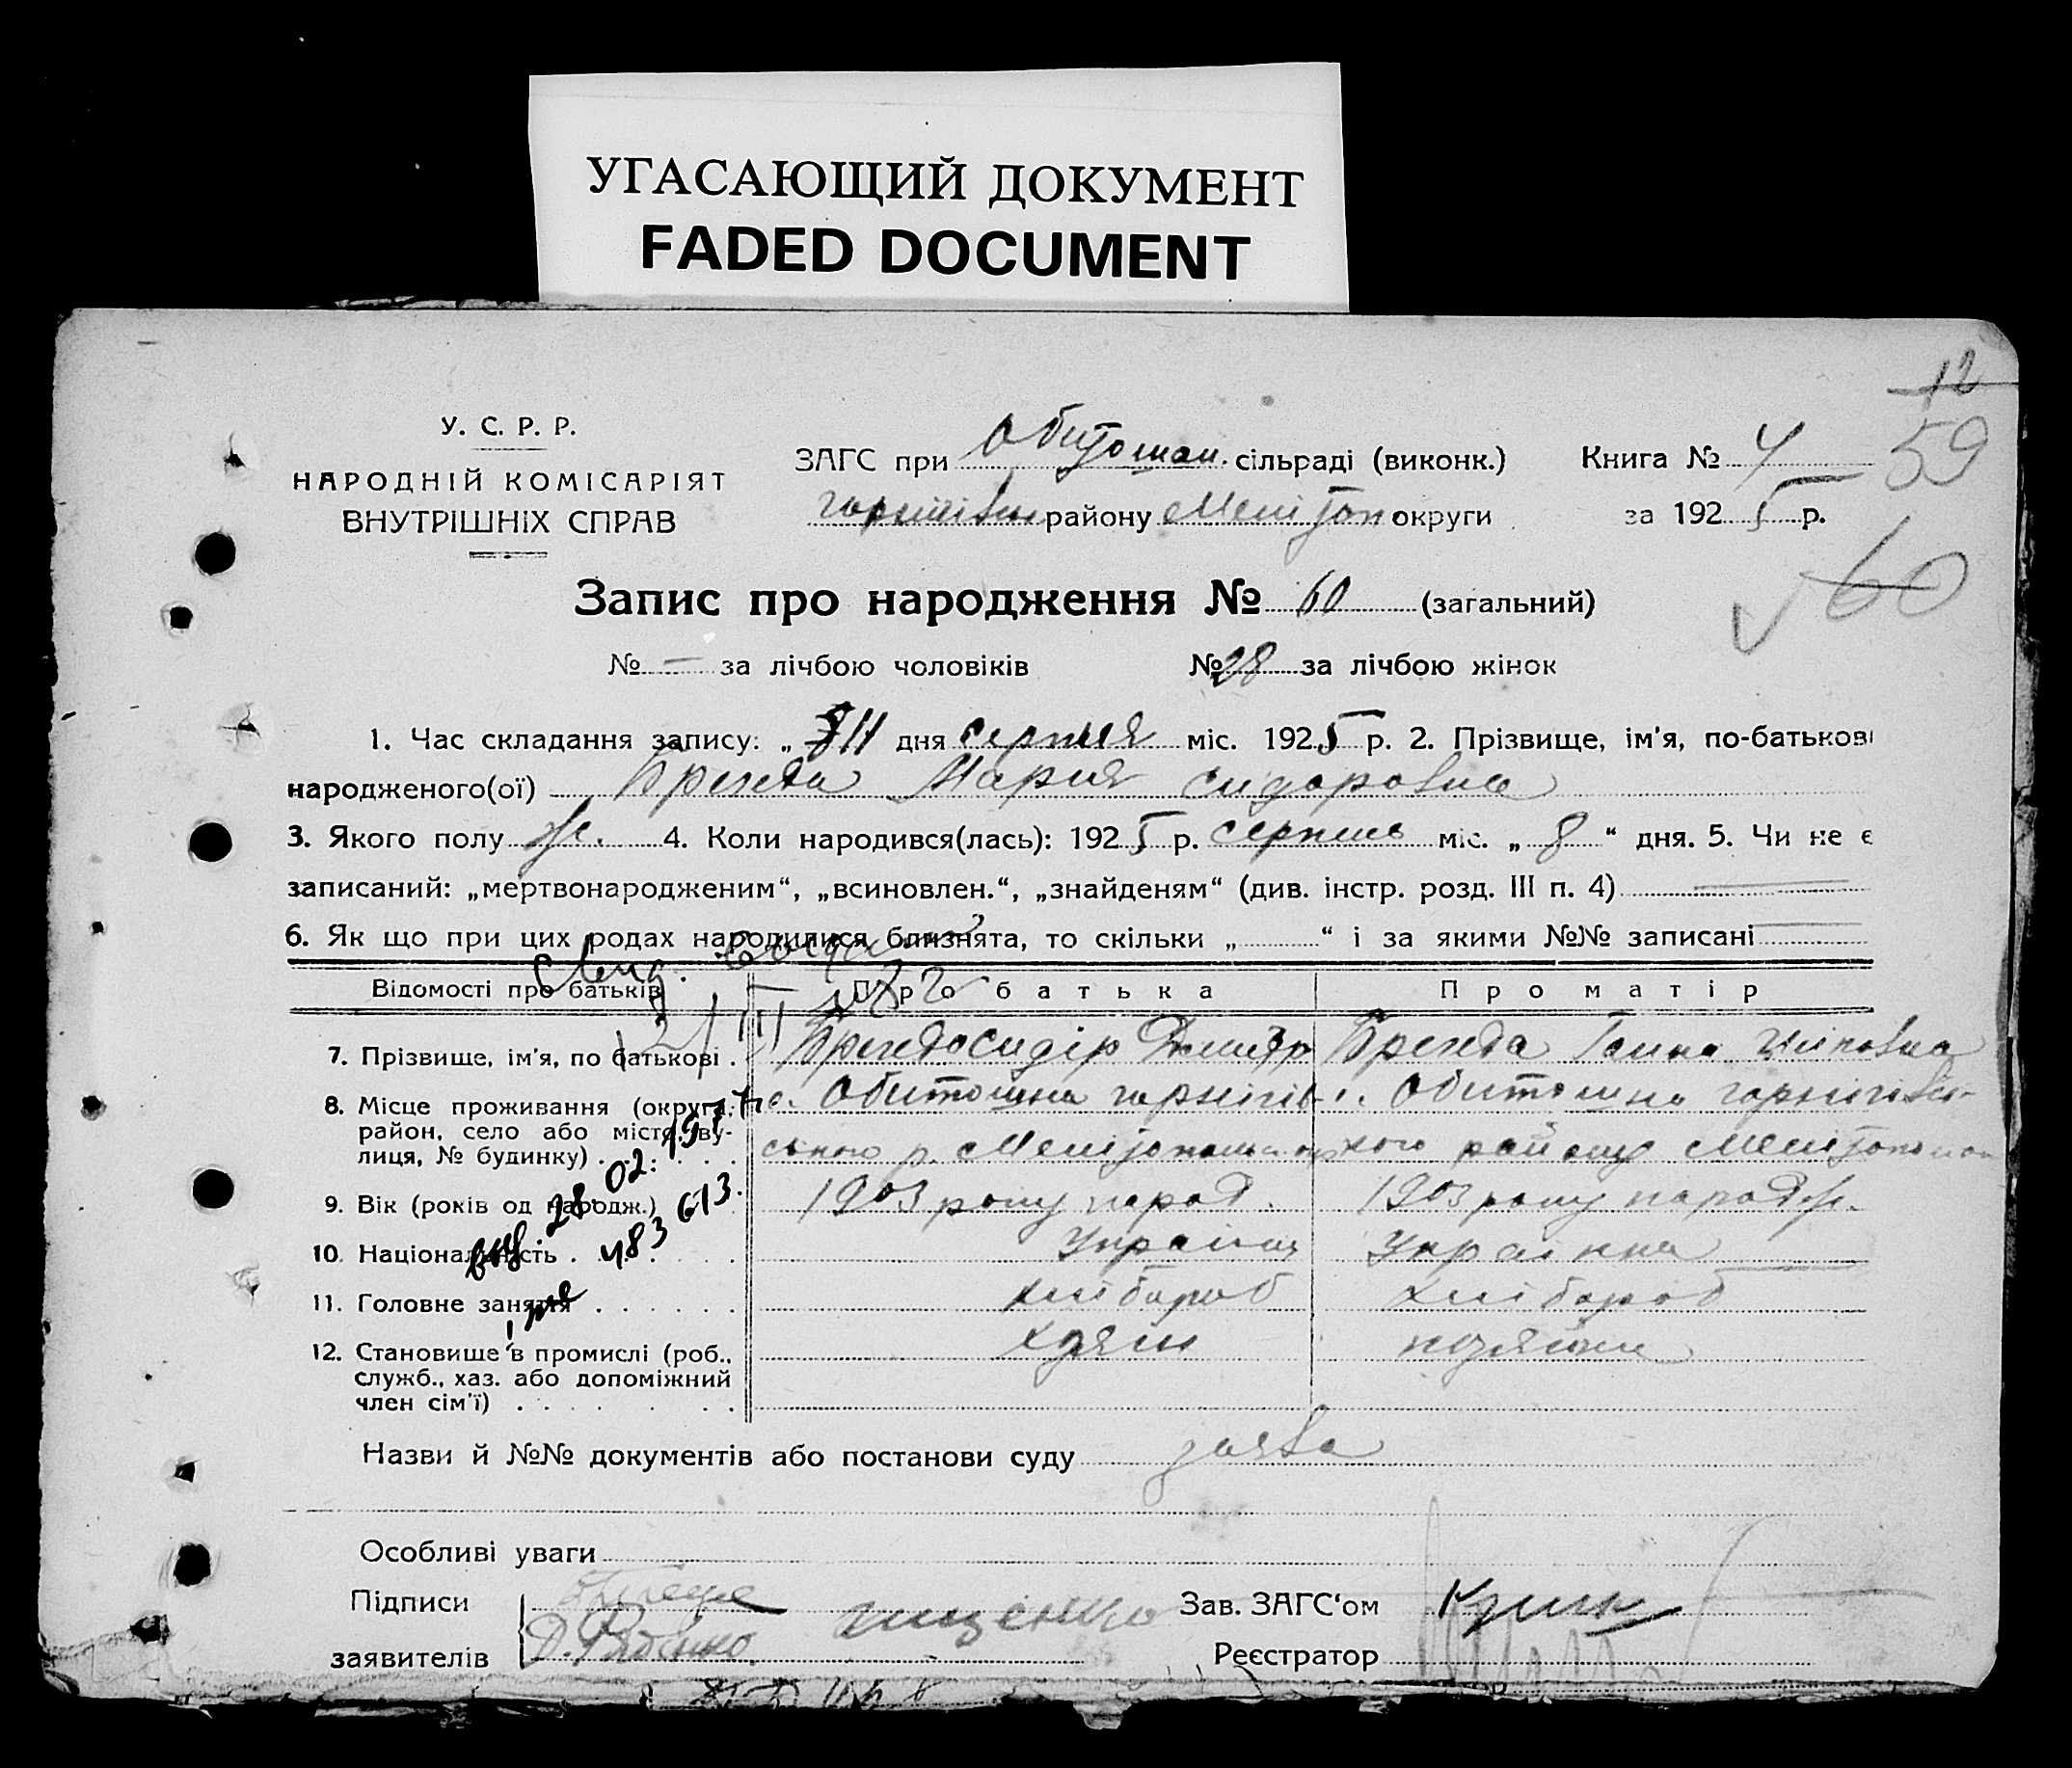 УГАСАЮЩИЙ ДОКУМЕНТ
FADED DOCUMENT
12
У. С. Р. Р.
НАРОДНІЙ КОМІСАРІЯТ
ВНУТРІШНІХ СПРАВ
ЗАГС при Обитошан. сільраді (виконк.)
району округи
Книга № 4
59
за 1925 р.
60
Запис про народження № 60 (загальний)
№ — за лічбою чоловіків № 28 за лічбою жінок
1. Час складання запису: „ 11 дня серпня міс. 1925 р. 2. Прізвище, ім'я, по-батькові
народженого(ої) Мария Сидоровна
3. Якого полу ж. 4. Коли народився(лась): 1925 р. серпень міс. „ 8 “ дня. 5. Чи не є
записаний: „мертвонародженим“, „всиновлен.“, „знайденям“ (див. інстр. розд. III п. 4)
6. Як що при цих родах народилися близнята, то скільки „ “ і за якими №№ записані
Відомості про батьків Про батька Про матір
7. Прізвище, ім'я, по батькові . Сидір Дмитр Ганна
8. Місце проживання (округа, район, село або місто, вулиця, № будинку) с. Обитошна чернігів- с. Обитошна чернігівсь-
ського р. кого району
9. Вік (років од народж.) 1903 року народ. 1903 року народж.
10. Національність . Українець Українка
11. Головне заняття хлібороб хлібороб
12. Становище в промислі (роб.,
служб., хаз. або допоміжний
член сім'ї)
28.02. 1977
483 613.
Назви й №№ документів або постанови суду заява
Особливі уваги
Підписи
заявителів
Д. Рябенко
Зав. ЗАГС'ом
Реєстратор